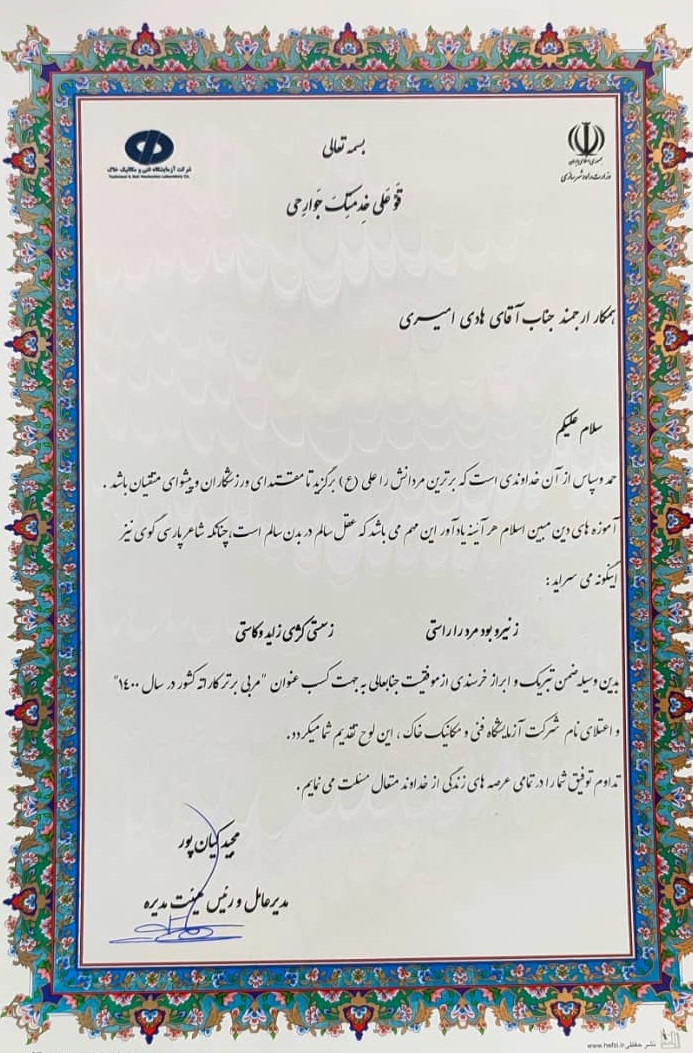 بسمه تعالی
جمهوری اسلامی ایران
وزارت راه و شهرسازی
شرکت آزمایشگاه فنی و مکانیک خاک
Technical & Soil Mechanics Laboratory Co.
قَوِّ عَلی خِدمَتِکَ جَوارِحی
همکار ارجمند جناب آقای هادی امیری
سلام علیکم
حمد و سپاس از آن خداوندی است که برترین مردانش را علی (ع) برگزید تا مقتدای ورزشکاران و پیشوای متقیان باشد .
آموزه های دین مبین اسلام هر آئینه یادآور این مهم می باشد که عقل سالم در بدن سالم است، چنانکه شاعر پارسی گوی نیز
اینگونه می سراید :
ز نیرو بود مرد را راستی ز سستی کژی زاید و کاستی
بدین وسیله ضمن تبریک و ابراز خرسندی از موفقیت جنابعالی به جهت کسب عنوان "مربی برتر کاراته کشور در سال ۱۴۰۰"
و اعتلای نام شرکت آزمایشگاه فنی و مکانیک خاک ، این لوح تقدیم شما میگردد.
تداوم توفیق شما را در تمامی عرصه های زندگی از خداوند متعال مسئلت می نمایم .
مجید کیان پور
مدیرعامل و رئیس هیئت مدیره
نشر حفظی www.hefzi.ir